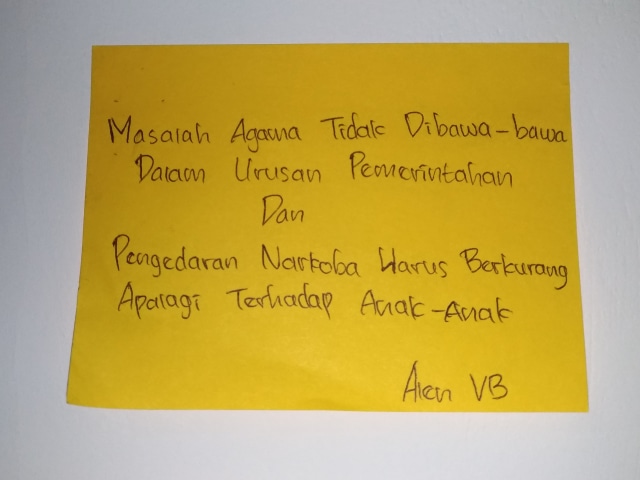 Masalah Agama Tidak Dibawa-bawa
Dalam Urusan Pemerintahan
Dan
Pengedaran Narkoba Harus Berkurang
Apalagi Terhadap Anak-Anak
Alen VB